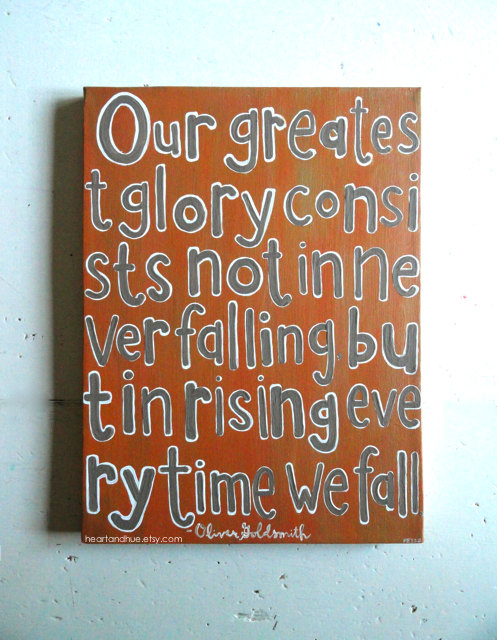 Our greates
t glory consi
sts not in ne
ver falling bu
t in rising eve
ry time we fall
- Oliver Goldsmith
heartandhue.etsy.com